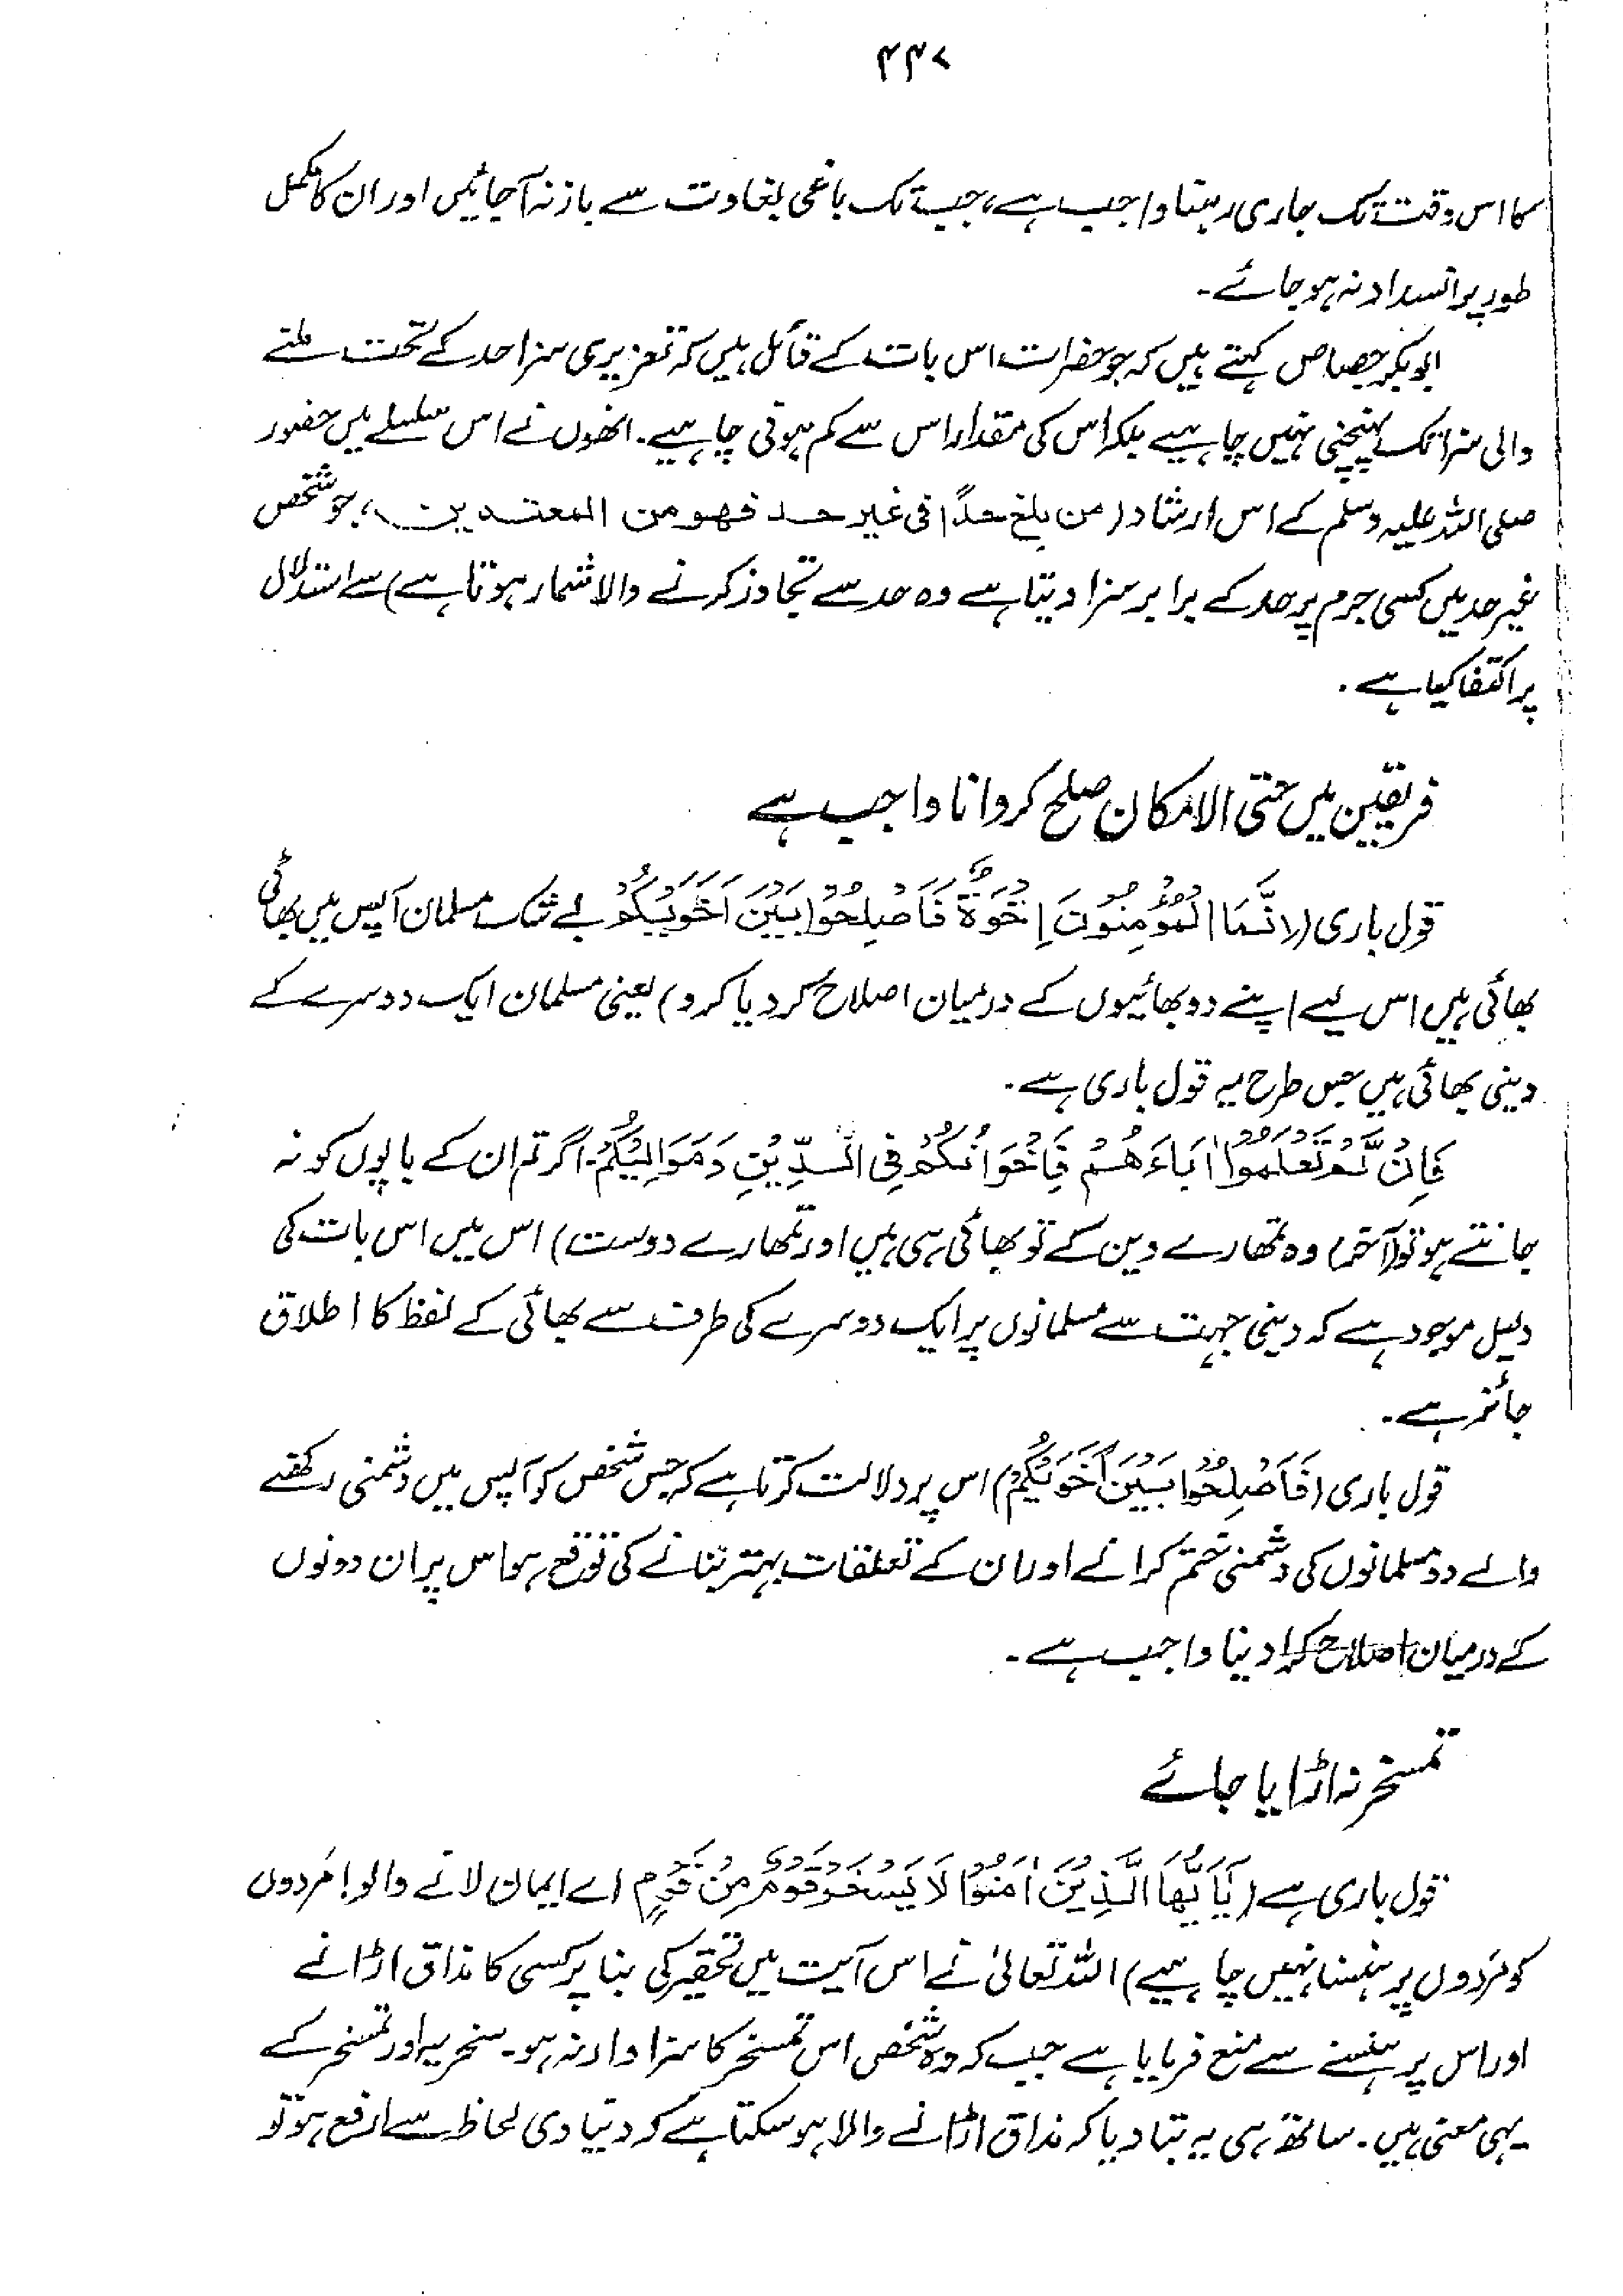 ۴۳۷
کا اس وقت تک جاری رہنا واجب ہے، جب تک باغی بغاوت سے باز نہ آجائیں اور ان کا مکمل
طور پر انسداد نہ ہو جائے۔
ابوبکر جصاص کہتے ہیں کہ جو حضرات اس بات کے قائل ہیں کہ تعزیری سزا حد کے تحت ملنے
والی سزا تک پہنچنی نہیں چاہیے بلکہ اس کی مقدار اس سے کم ہونی چاہیے۔ انھوں نے اس سلسلے میں حضور
صلی اللہ علیہ وسلم کے اس ارشاد (من بلغ حداً فی غیر حد فهو من المعتدین، جو شخص
غیر حد میں کسی جرم پر حد کے برابر سزا دیتا ہے وہ حد سے تجاوز کرنے والا شمار ہوتا ہے) سے استدلال
پر اکتفا کیا ہے۔
فریقین میں حتی الامکان صلح کروانا واجب ہے
قول باری (اِنَّمَا الْمُؤْمِنُوْنَ اِخْوَةٌ فَاَصْلِحُوْا بَيْنَ اَخَوَيْكُمْ بے شک مسلمان آپس میں بھائی
بھائی ہیں اس لیے اپنے دو بھائیوں کے درمیان اصلاح کر دیا کرو) یعنی مسلمان ایک دوسرے کے
دینی بھائی ہیں جس طرح یہ قول باری ہے۔
فَاِنْ لَّمْ تَعْلَمُوْا اٰبَاءَهُمْ فَاِخْوَانُكُمْ فِی الدِّيْنِ وَمَوَالِيْكُمْ۔ اگر تم ان کے باپوں کو نہ
جانتے ہو تو (آخر) وہ تمھارے دین کے تو بھائی ہی ہیں اور تمھارے دوست) اس میں اس بات کی
دلیل موجود ہے کہ دینی جہت سے مسلمانوں پر ایک دوسرے کی طرف سے بھائی کے لفظ کا اطلاق
جائز ہے۔
قول باری (فَاَصْلِحُوْا بَيْنَ اَخَوَيْكُمْ) اس پر دلالت کرتا ہے کہ جس شخص کو آپس میں دشمنی رکھنے
والے دو مسلمانوں کی دشمنی ختم کرانے اور ان کے تعلقات بہتر بنانے کی توقع ہو اس پر ان دونوں
کے درمیان اصلاح کرا دینا واجب ہے۔
تمسخر نہ اڑایا جائے
قول باری ہے (يٰاَيُّهَا الَّذِيْنَ اٰمَنُوْا لَا يَسْخَرْ قَوْمٌ مِّنْ قَوْمٍ اے ایمان لانے والو! مَردوں
کو مَردوں پر ہنسنا نہیں چاہیے) اللہ تعالیٰ نے اس آیت میں تحقیر کی بنا پر کسی کا مذاق اڑانے
اور اس پر ہنسنے سے منع فرمایا ہے جب کہ وہ شخص اس تمسخر کا سزاوار نہ ہو۔ سخریہ اور تمسخر کے
یہی معنی ہیں۔ ساتھ ہی یہ بتا دیا کہ مذاق اڑانے والا ہو سکتا ہے کہ دنیاوی لحاظ سے ارفع ہو تو